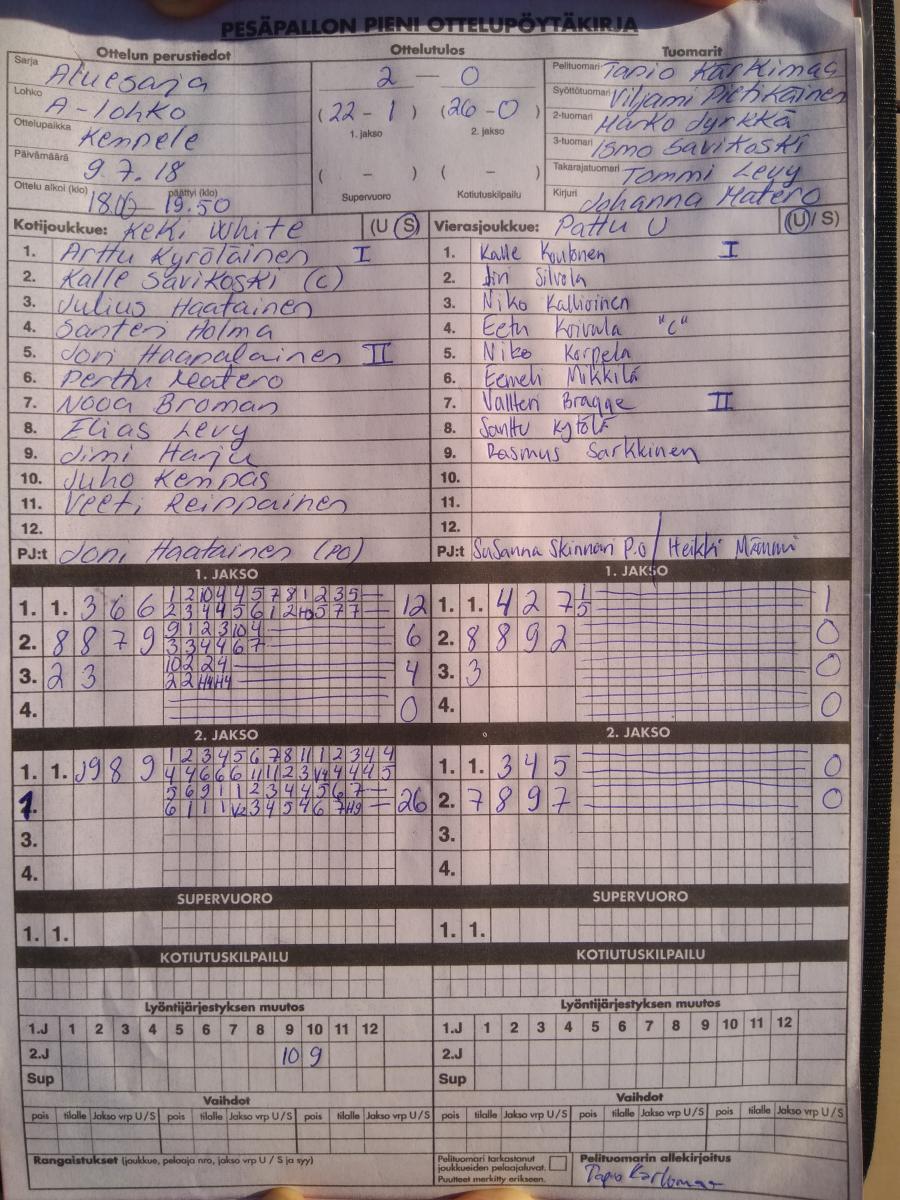 PESÄPALLON PIENI OTTELUPÖYTÄKIRJA
Ottelun perustiedot
Sarja Aluesarja
Lohko A-lohko
Ottelupaikka Kempele
Päivämäärä 9.7.18
Ottelu alkoi (klo) 18.00 päättyi (klo) 19.50
Ottelutulos
2 – 0
(22 – 1) (26 – 0)
1. jakso 2. jakso
( – ) ( – )
Supervuoro Kotiutuskilpailu
Tuomarit
Pelituomari Tapio Karkimas
Syöttötuomari Viljami Pietikäinen
2-tuomari Marko Jyrkkä
3-tuomari Ismo Savikoski
Takarajatuomari Tommi Levy
Kirjuri Johanna Matero
Kotijoukkue: KeKi White (U S)
1. Arttu Kyröläinen I
2. Kalle Savikoski (C)
3. Julius Haatainen
4. Santeri Holma
5. Joni Haapalainen II
6. Perttu Matero
7. Nooa Broman
8. Elias Levy
9. Jimi Harju
10. Juho Kempas
11. Veeti Reippainen
12.
PJ:t Joni Haatainen (PO)
Vierasjoukkue: Pattu U (U / S)
1. Kalle Koutonen I
2. Jiri Silvola
3. Niko Kallioinen
4. Eetu Koivula "C"
5. Niko Korpela
6. Eemeli Mikkilä
7. Valtteri Bragge II
8. Santtu Kytölä
9. Rasmus Sarkkinen
10.
11.
12.
PJ:t Susanna Skinnari P.O / Heikki Männi
1. JAKSO
1. 1. 3 6 6 12
2. 8 8 7 9 6
3. 2 3 4
4. 0
1. JAKSO
1. 1. 4 2 7 1
2. 8 8 9 2 0
3. 3 0
4. 0
2. JAKSO
1. 1. 9 8 9
1. 26
3.
4.
2. JAKSO
1. 1. 3 4 5 0
2. 7 8 9 7 0
3.
4.
SUPERVUORO
1. 1.
SUPERVUORO
1. 1.
KOTIUTUSKILPAILU
KOTIUTUSKILPAILU
Lyöntijärjestyksen muutos
1.J 1 2 3 4 5 6 7 8 9 10 11 12
2.J 10 9
Sup
Lyöntijärjestyksen muutos
1.J 1 2 3 4 5 6 7 8 9 10 11 12
2.J
Sup
Vaihdot
pois tilalle Jakso vrp U/S pois tilalle Jakso vrp U/S pois tilalle Jakso vrp U/S
Vaihdot
pois tilalle Jakso vrp U/S pois tilalle Jakso vrp U/S pois tilalle Jakso vrp U/S
Rangaistukset (joukkue, pelaaja nro, jakso vrp U / S ja syy)
Pelituomari tarkastanut
joukkueiden pelaajaluvat.
Puutteet merkitty erikseen.
Pelituomarin allekirjoitus
Tapio